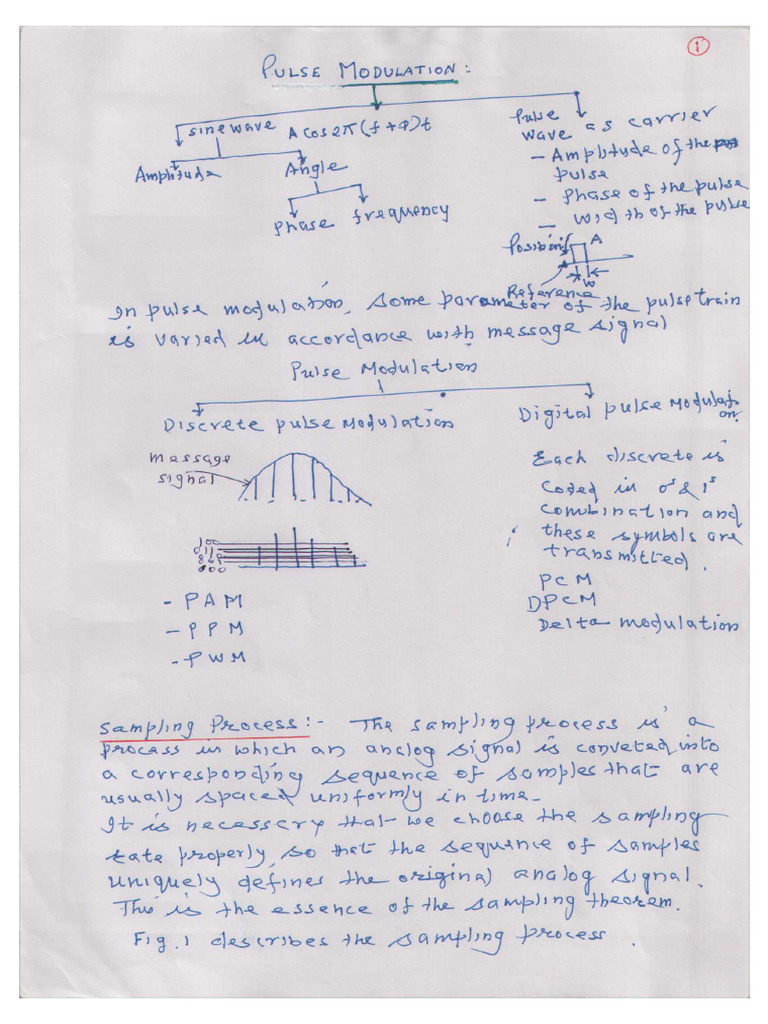 1
PULSE MODULATION:
sinewave A cos2π(f+φ)t
Amplitude
Angle
Phase frequency
Pulse
wave as carrier
- Amplitude of the
pulse
- Phase of the pulse
- width of the pulse
Position A
W
Reference
In pulse modulation, some parameter of the pulse train
is varied in accordance with message signal
Pulse Modulation
Discrete pulse Modulation
Digital pulse Modulati
on.
message
signal
- PAM
- PPM
- PWM
Each discrete is
coded in 0s & 1s
combination and
these symbols are
transmitted.
PCM
DPCM
Delta modulation
Sampling Process:- The sampling process is a
process in which an analog signal is conveted into
a corresponding sequence of samples that are
usually spaced uniformly in time.
It is necessary that we choose the sampling
rate properly, so that the sequence of samples
uniquely defines the original analog signal.
This is the essence of the sampling theorem.
Fig. 1 describes the sampling process.